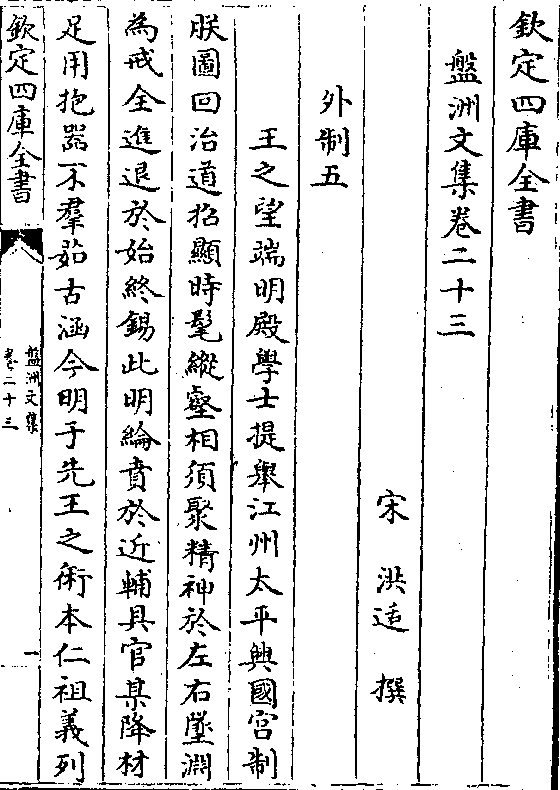 欽定四庫全書
盤洲文集卷二十三
宋 洪适 撰
外制五
王之望端明殿學士提舉江州太平興國宮制
朕圖回治道招顯時髦縱壑相須聚精神於左右墜淵
為戒全進退於始終錫此明綸賁於近輔具官某降材
足用抱器不羣茹古涵今明于先王之術本仁祖義列
欽定四庫全書
盤洲文集
卷二十三
一